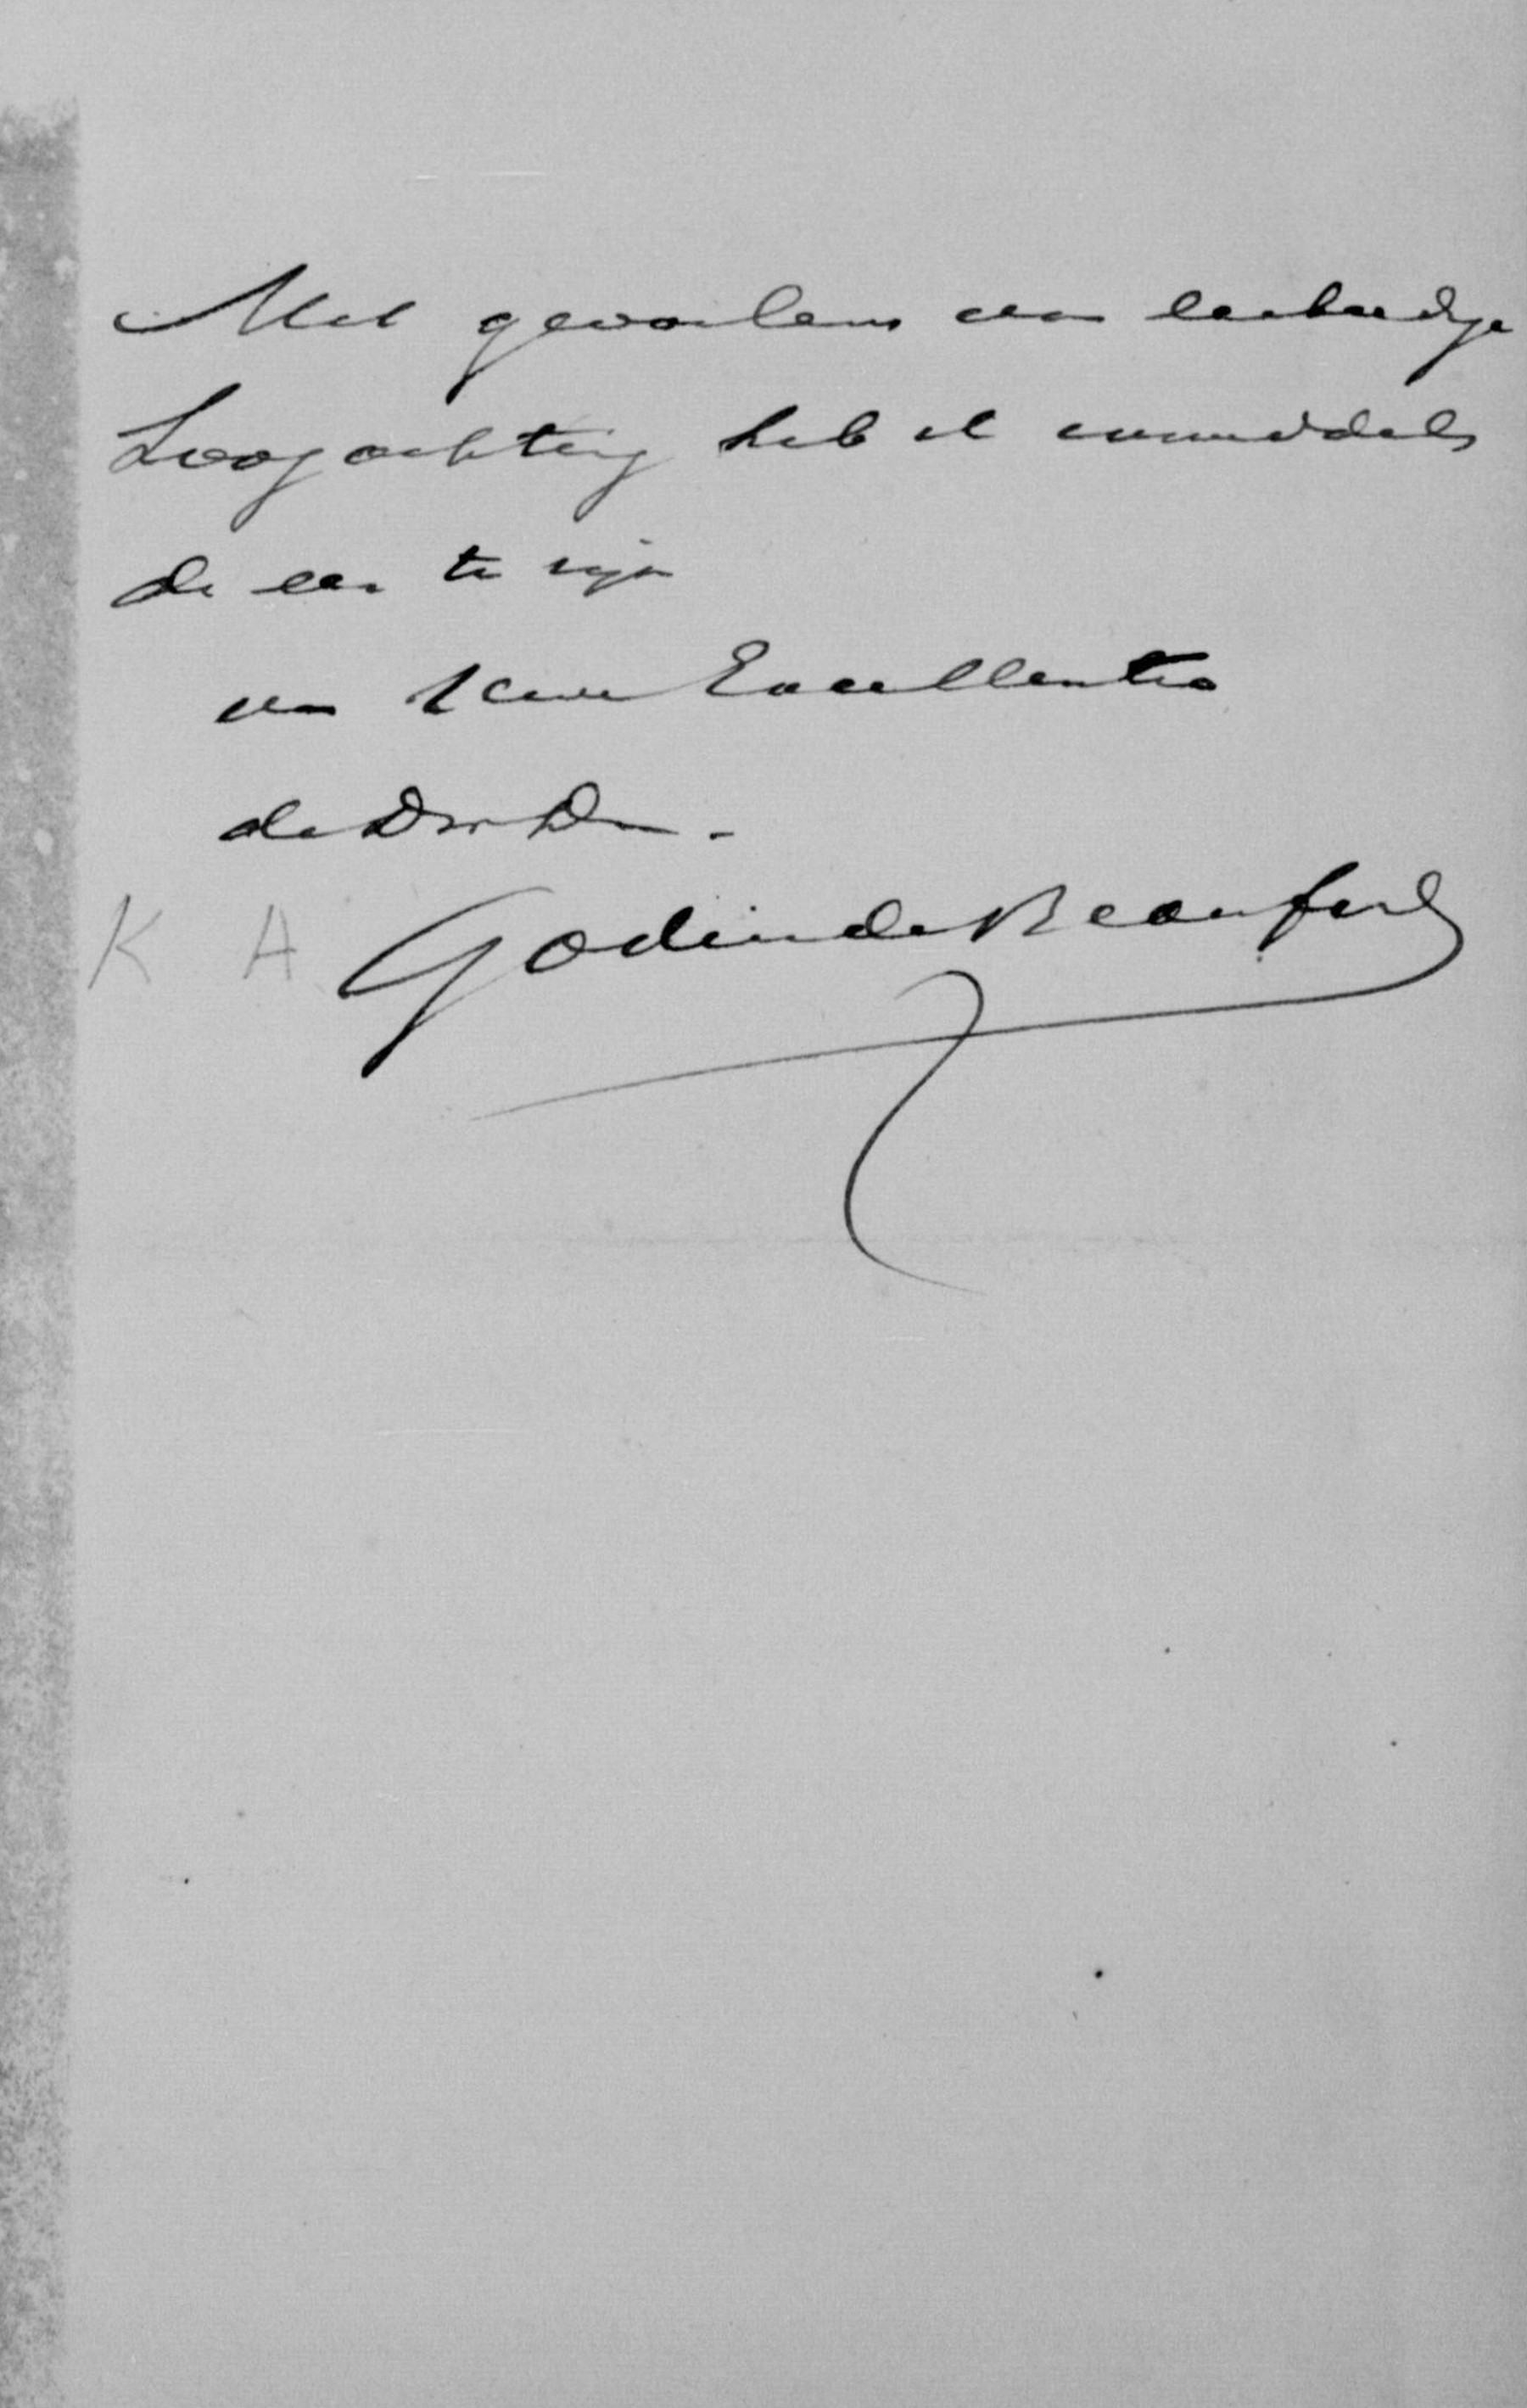 Met gevoelens van eerbiedige
hoogachting heb ik inmiddels
de eer te zijn
van Uwe Excellentie
de Dw Dr.
K A Godin de Beaufort